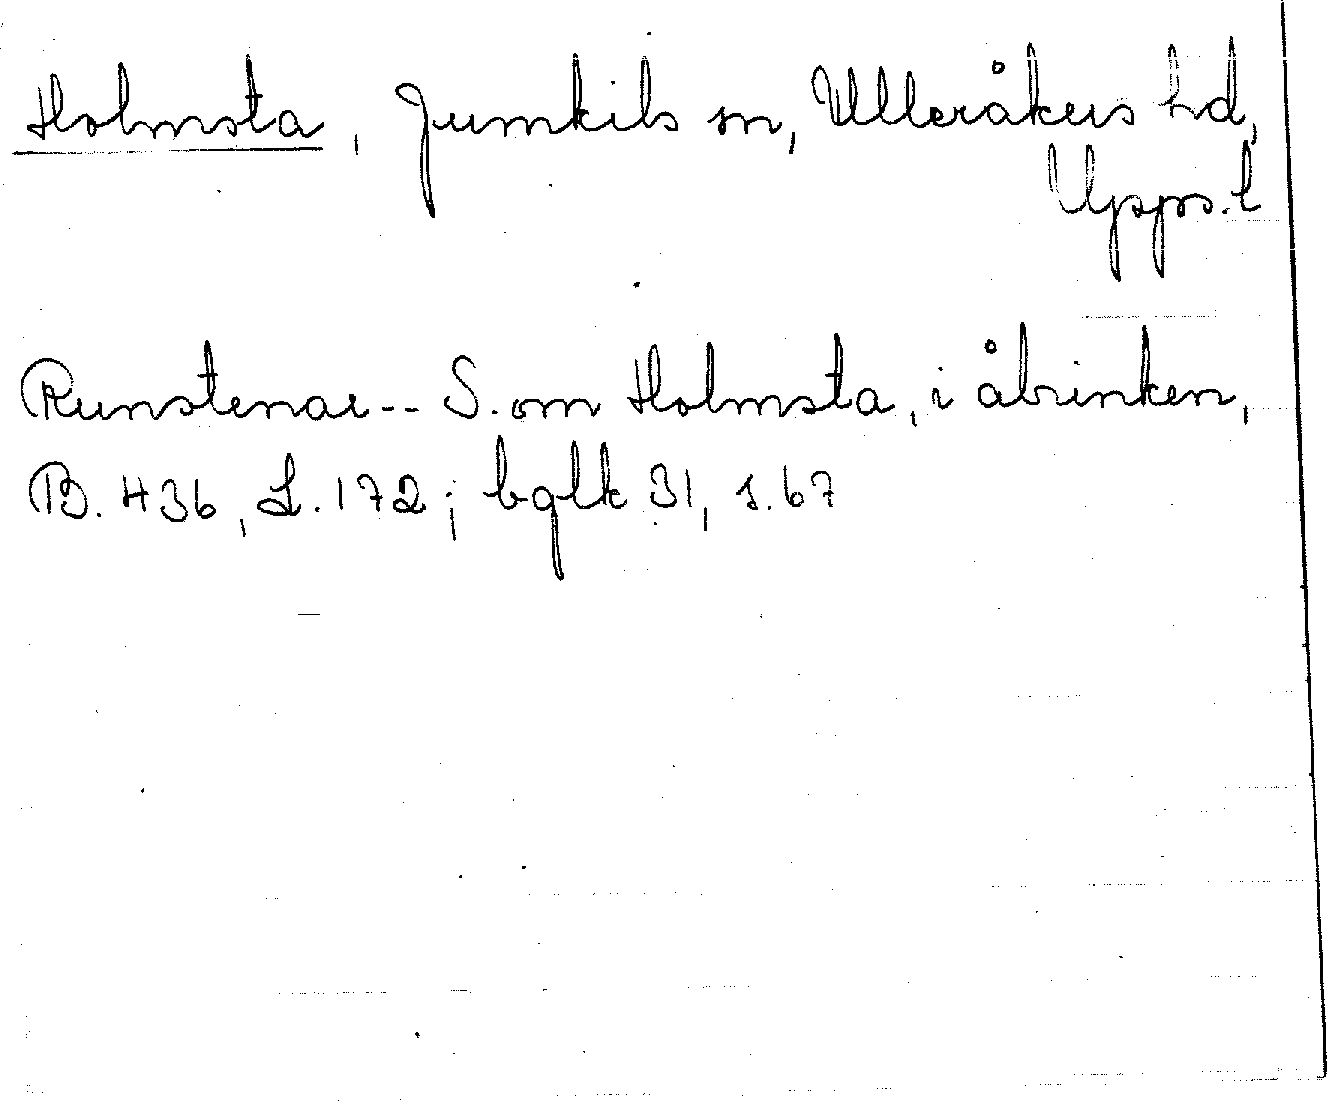 Holmsta, Jumkils sn, Ulleråkers hd,
Upps. l
Runstenar -- S. om Holmsta, i åbrinken,
B. 436, L. 172; bglk 31, s. 67